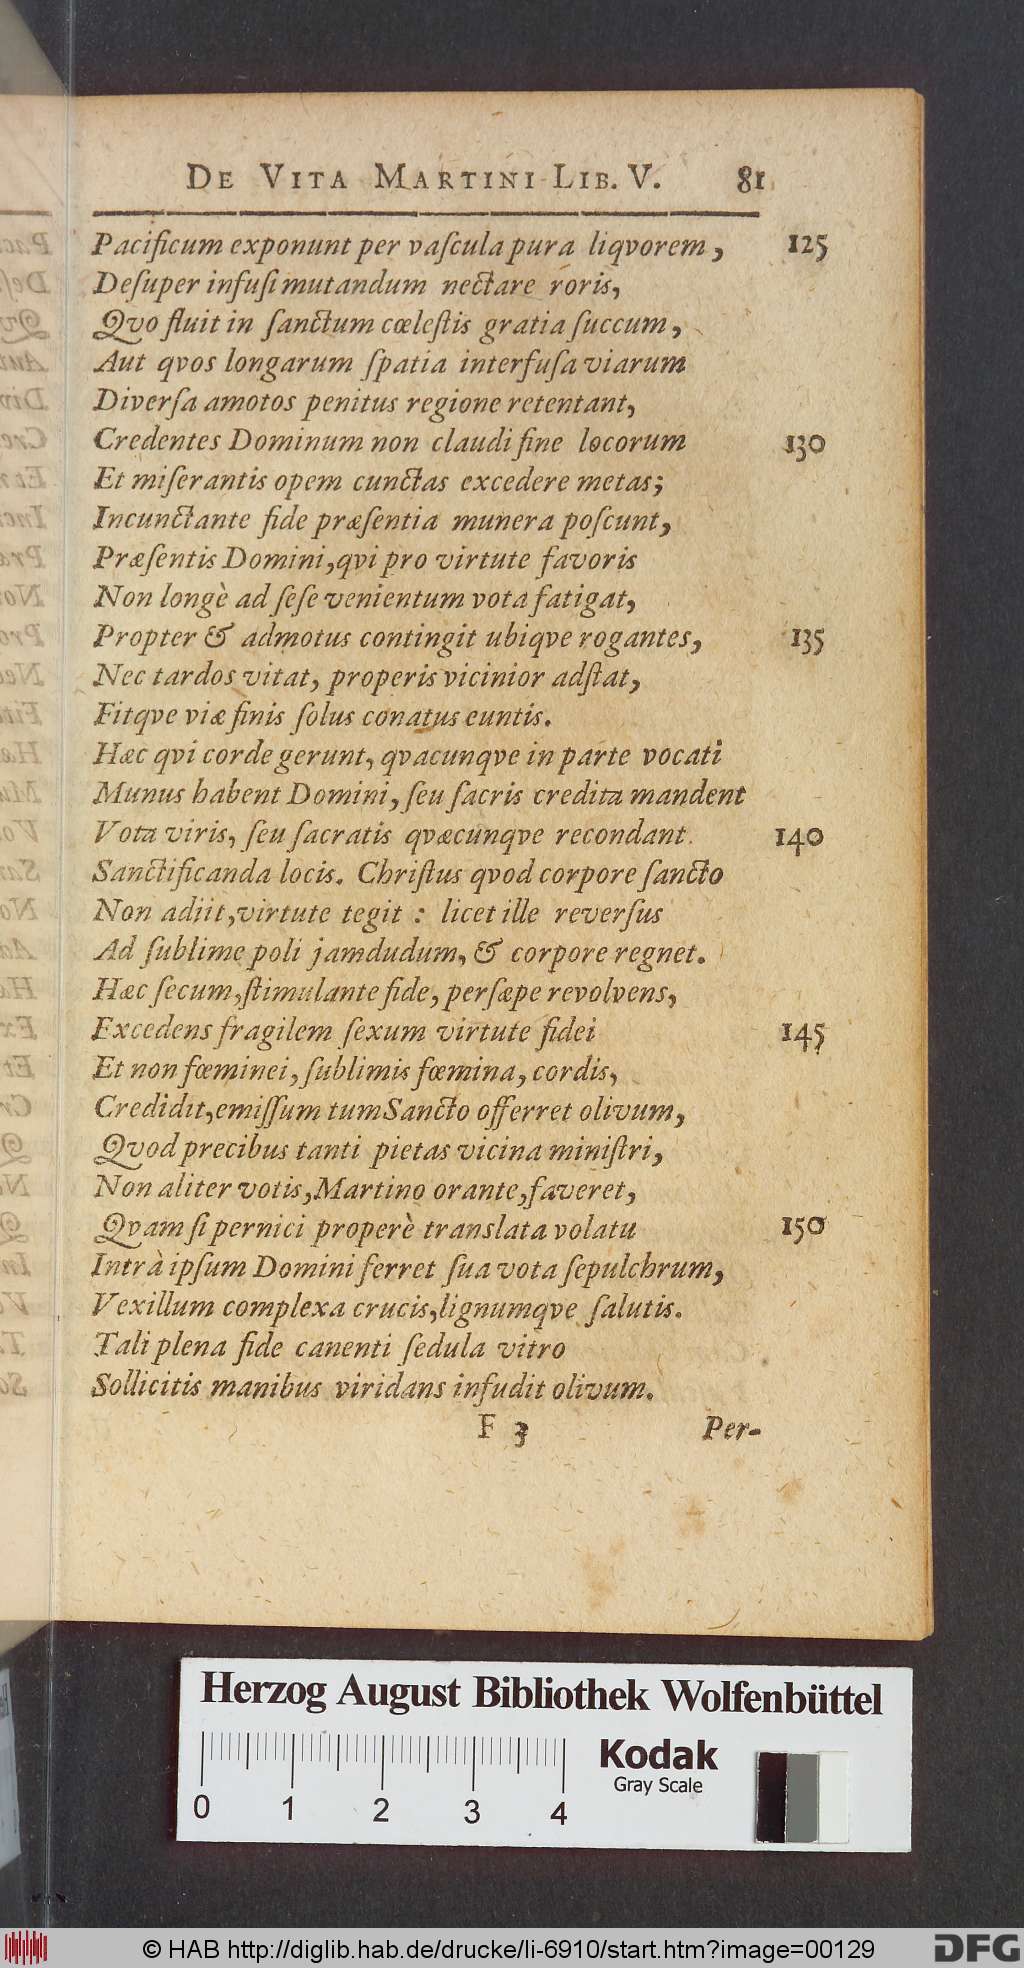 DE VITA MARTINI LIB. V. 81
Pacificum exponunt per vaſcula pura liqvorem, 125
Deſuper infuſi mutandum nectare roris,
Qvo fluit in ſanctum cœleſtis gratia ſuccum,
Aut qvos longarum ſpatia interfuſa viarum
Diverſa amotos penitus regione retentant,
Credentes Dominum non claudi fine locorum 130
Et miſerantis opem cunctas excedere metas;
Incunctante fide præſentia munera poſcunt,
Præſentis Domini, qvi pro virtute favoris
Non longè ad ſeſe venientum vota fatigat,
Propter & admotus contingit ubiqve rogantes, 135
Nec tardos vitat, properis vicinior adſtat,
Fitqve viæ finis ſolus conatus euntis.
Hæc qvi corde gerunt, qvacunqve in parte vocati
Munus habent Domini, ſeu ſacris credita mandent
Vota viris, ſeu ſacratis qvæcunqve recondant 140
Sanctificanda locis. Chriſtus qvod corpore ſancto
Non adiit, virtute tegit : licet ille reverſus
Ad ſublime poli jamdudum, & corpore regnet.
Hæc ſecum, ſtimulante fide, perſæpe revolvens,
Excedens fragilem ſexum virtute fidei 145
Et non fœminei, ſublimis fœmina, cordis,
Credidit, emiſſum tum Sancto offerret olivum,
Qvod precibus tanti pietas vicina miniſtri,
Non aliter votis, Martino orante, faveret,
Qvam ſi pernici properè translata volatu 150
Intrà ipſum Domini ferret ſua vota ſepulchrum,
Vexillum complexa crucis, lignumqve ſalutis.
Tali plena fide canenti ſedula vitro
Sollicitis manibus viridans infudit olivum.
F 3 Per-
Herzog August Bibliothek Wolfenbüttel
Kodak
Gray Scale
0 1 2 3 4
© HAB http://diglib.hab.de/drucke/li-6910/start.htm?image=00129
DFG